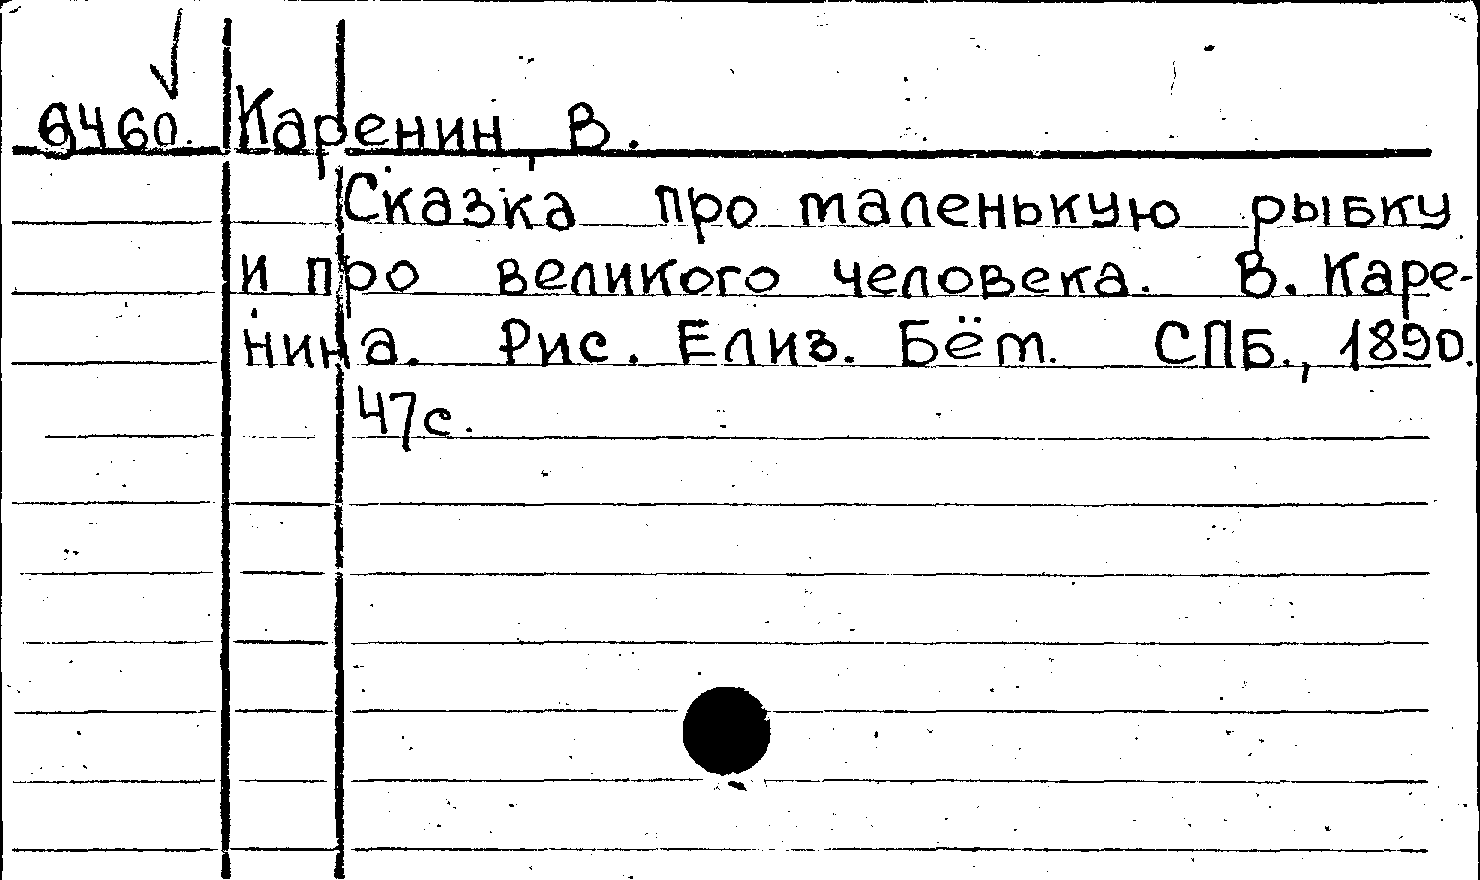 9460. Каренин, В.
Сказка про маленькую рыбку
и про великого человека. В. Каре-
нина. Рис. Елиз. Бём. СПБ., 1890.
47с.